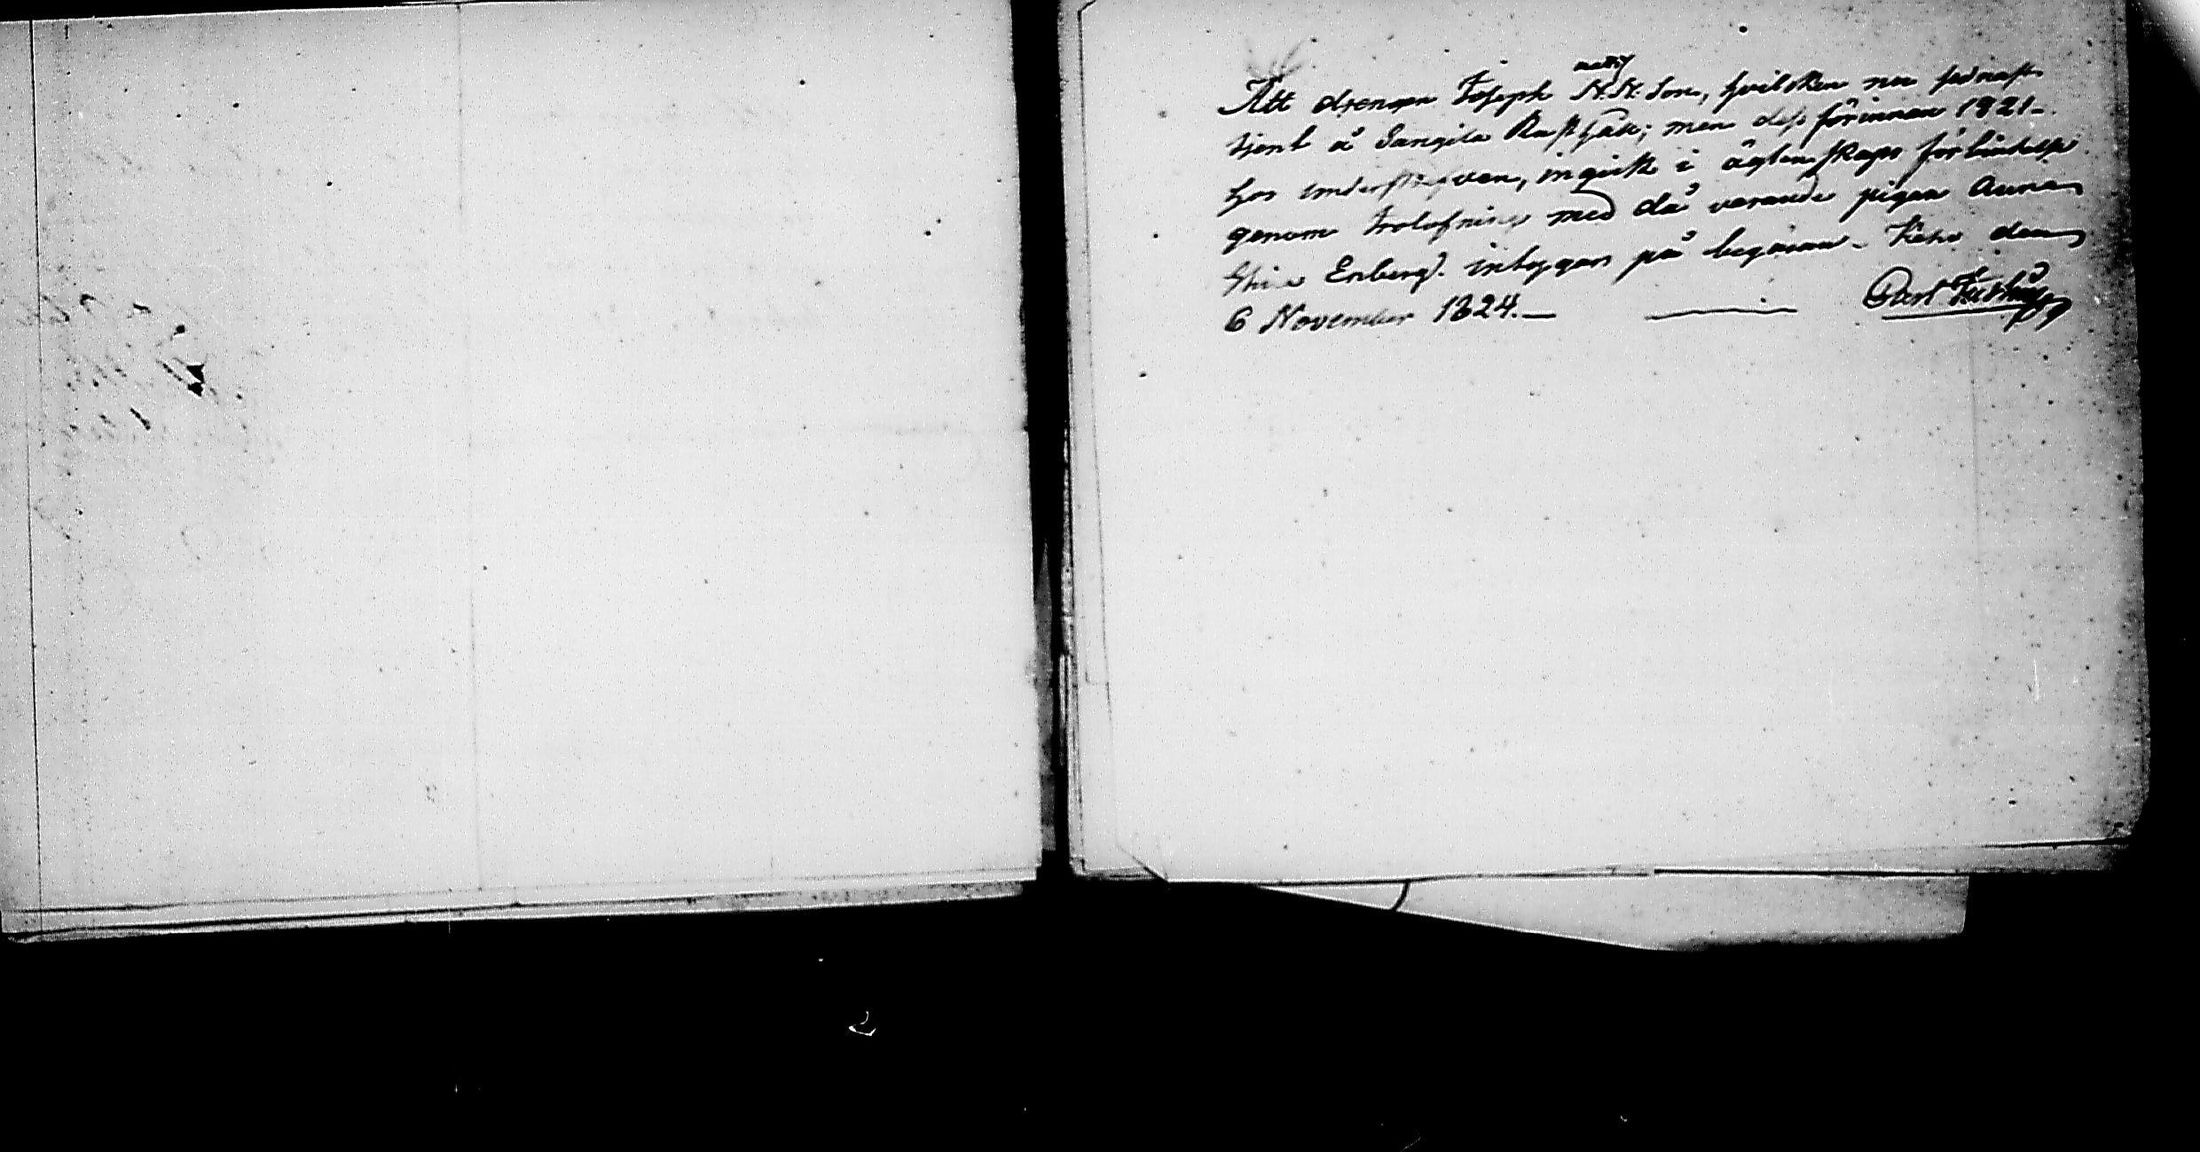 Att drengen Joseph N.N. Son, hvilken nu sednast
tjent å Sangila Rusthåll; men dess förinnan 1821-
hos undertskrefven, ingick i ägtenskaps förbindelse
genom trolofning med då varande pigan Anna
Stina Enberg. intygar på begäran - den
6 November 1824. —